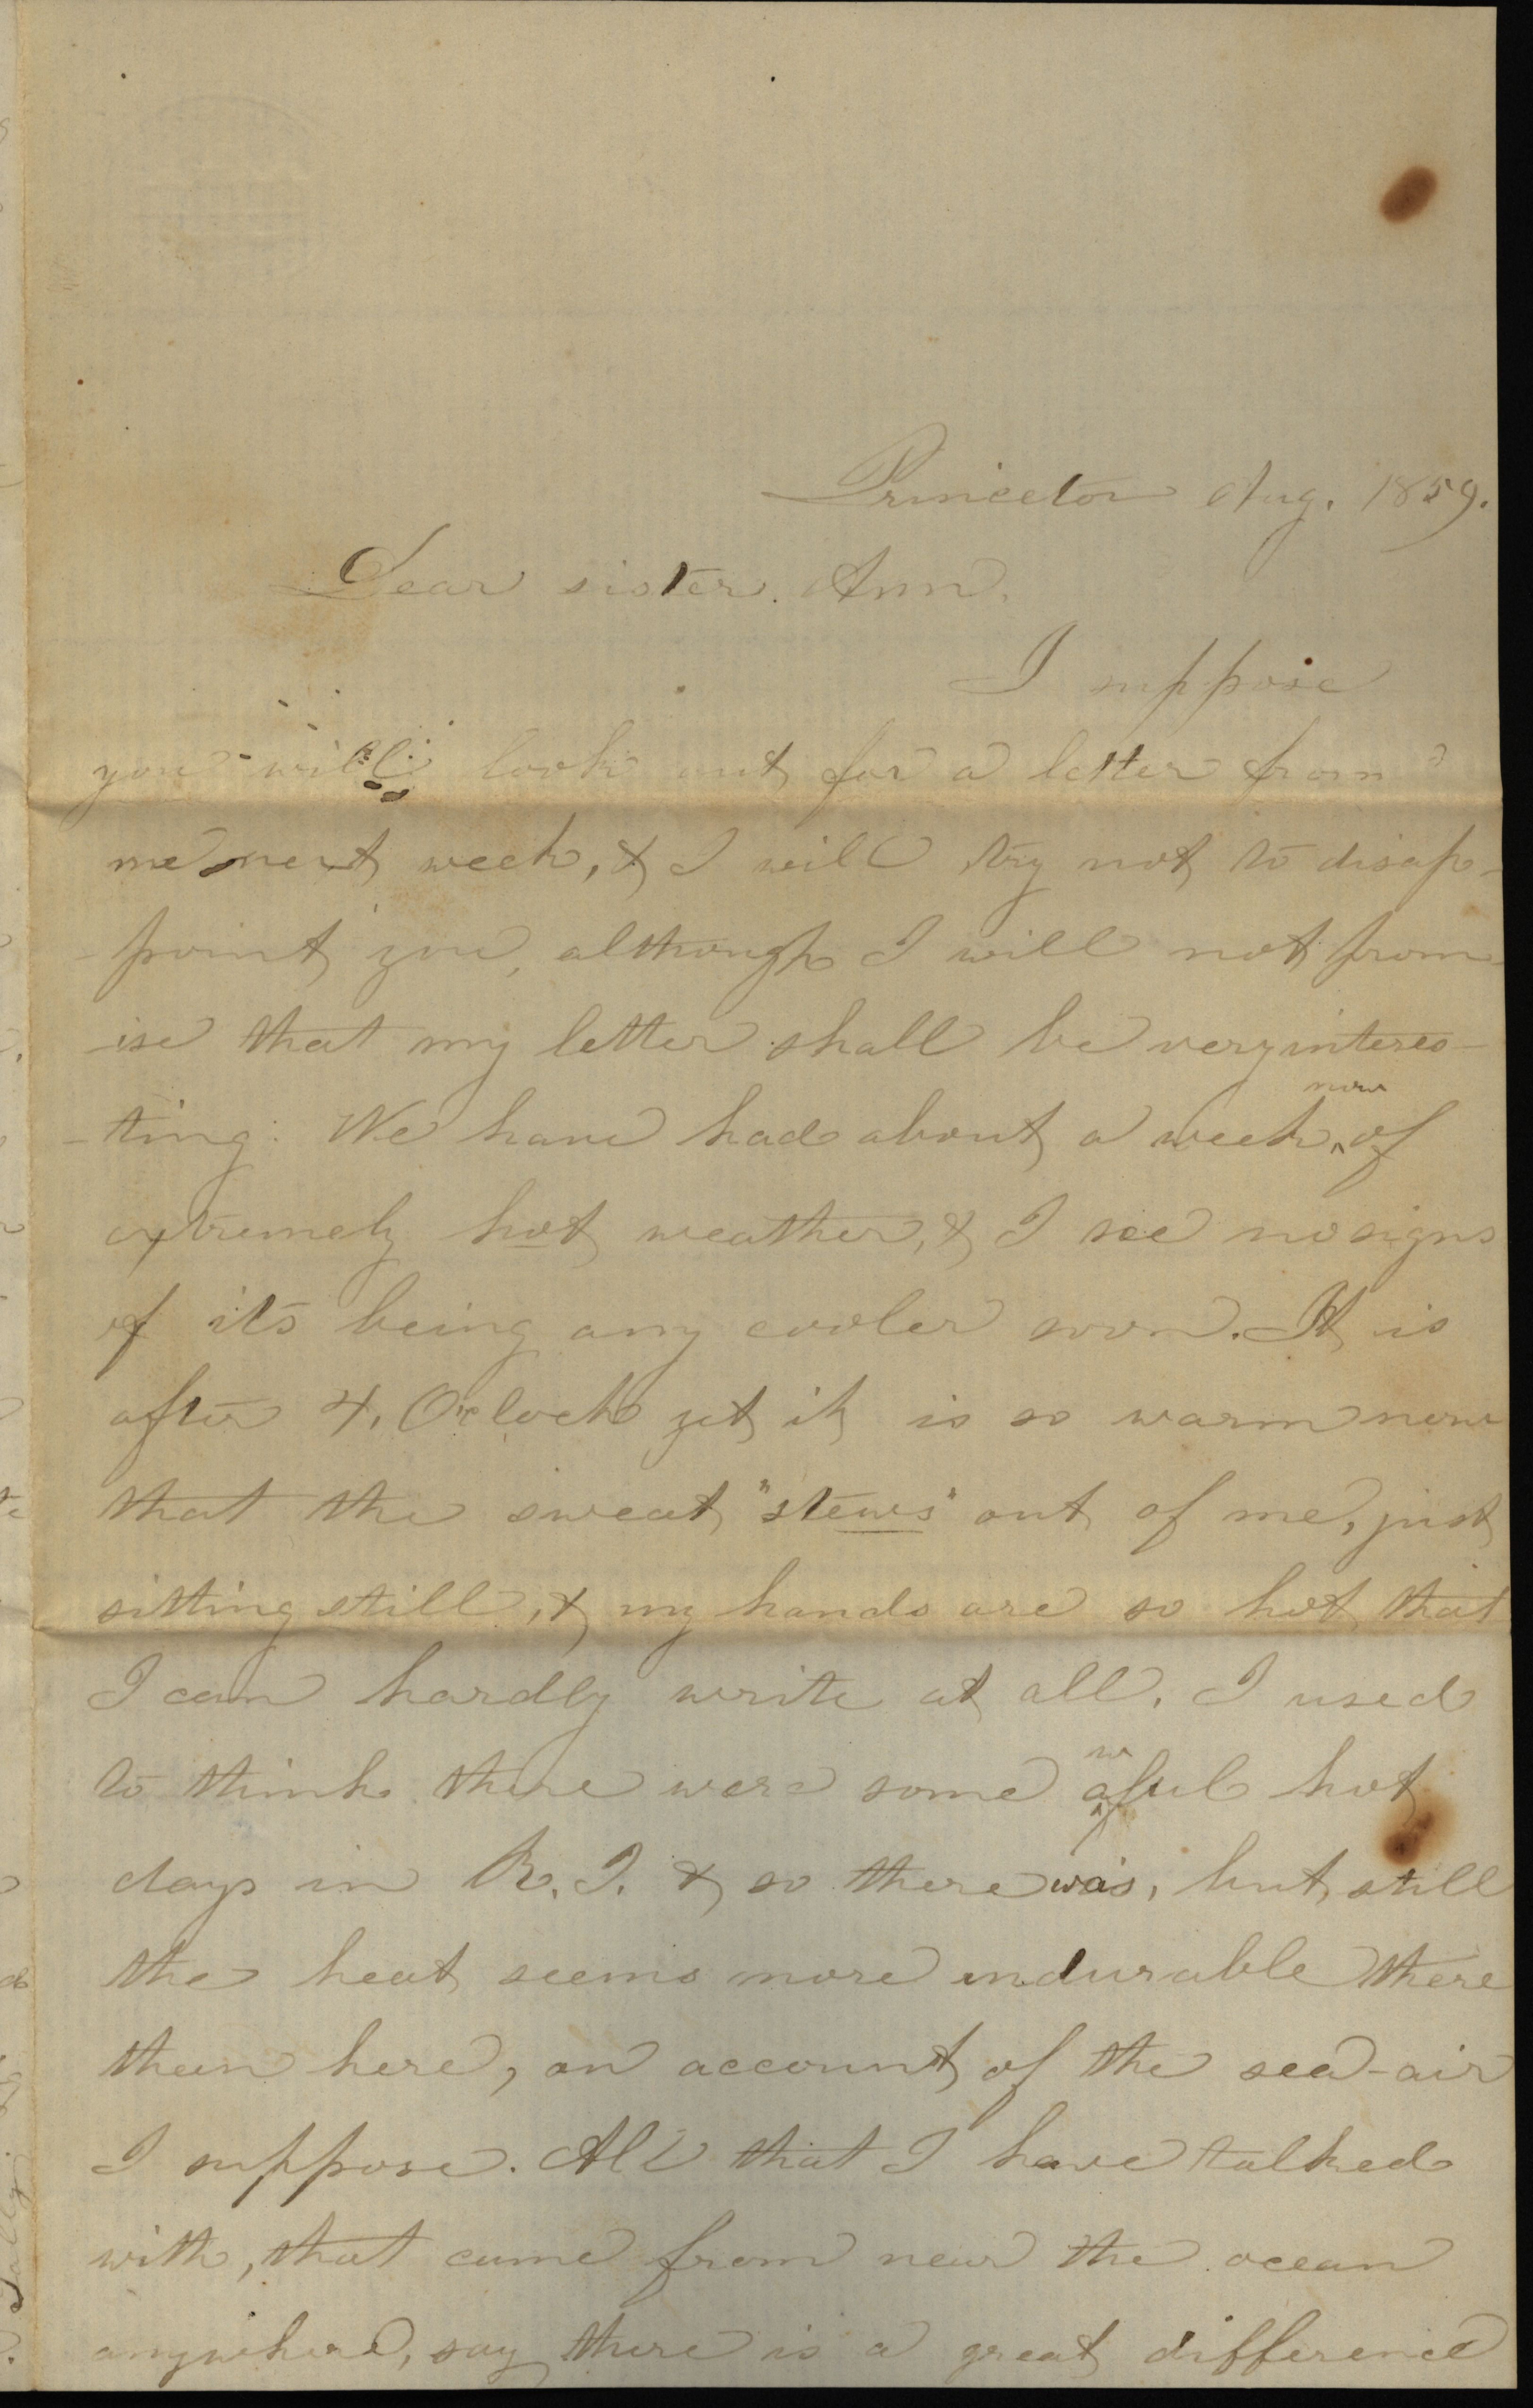 Princeton Aug. 1859.
Dear sister. Ann.
I suppose
you will look out for a letter from
me next week, & I will try not to disap-
-point you, although I will not prom-
-ise that my letter shall be very interes-
-ting. We have had about a week ^now of
extremely hot weather, & I see no signs
of its being any cooler soon. It is
after 4, O'clock yet it is so warm now
that the sweat "stews" out of me, just
sitting still, & my hands are so hot that
I can hardly write at all. I used
to think there were some a^wful hot
days in R. I. & so there was, but still
the heat seems more endurable there
than here, on account of the sea-air
I suppose. All that I have talked
with, that came from near the ocean
anywhere, say there is a great difference